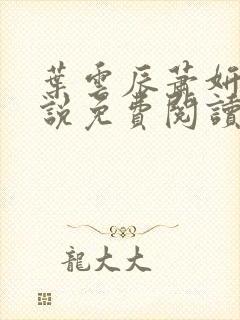 葉雲辰蕭妍
說免費閱讀
龍大大